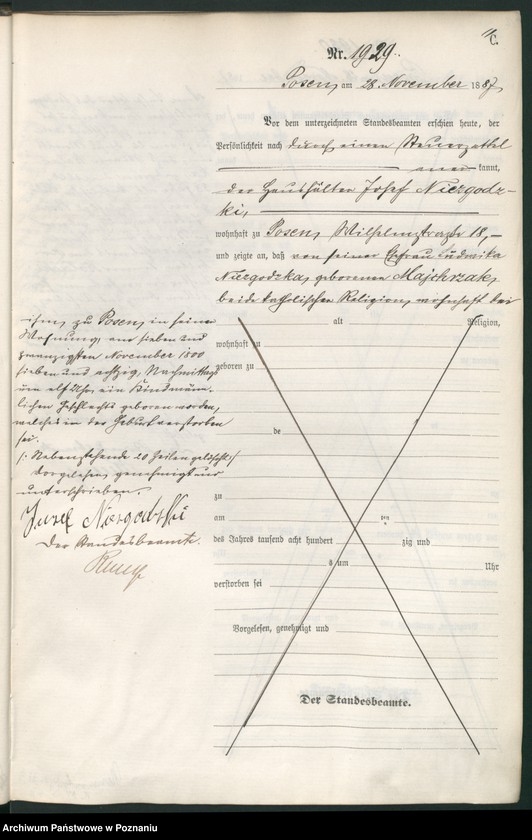 C.
Nr. 1929.
Posen, am 28. November 1887
Vor dem unterzeichneten Standesbeamten erschien heute, der
Persönlichkeit nach durch einen Steuerzettel
aner kannt,
der Haushälter Josef Niezgodz-
ki,
wohnhaft zu Posen, Wilhelmstraße 18,
und zeigte an, daß von seiner Ehefrau Ludwika
Niezgodzka, geborenen Majchrzak,
beide katholischer Religion, wohnhaft bei
ihm, zu Posen, in seiner
Wohnung am sieben und
zwanzigsten November 1800
sieben und achtzig, Nachmittags
um elf Uhr, ein Kind männ-
lichen Geschlechts geboren worden,
welches in der Geburt verstorben
sei.
/: Nebenstehende 20 Zeilen gelöscht:/
Vorgelesen, genehmigt und
unterschrieben.
Juzef Niezgodzki
Der Standesbeamte.
alt Religion,
wohnhaft zu
geboren zu
de
zu
am te
des Jahres tausend acht hundert zig und
s um Uhr
verstorben sei
Vorgelesen, genehmigt und
Der Standesbeamte.
Archiwum Państwowe w Poznaniu